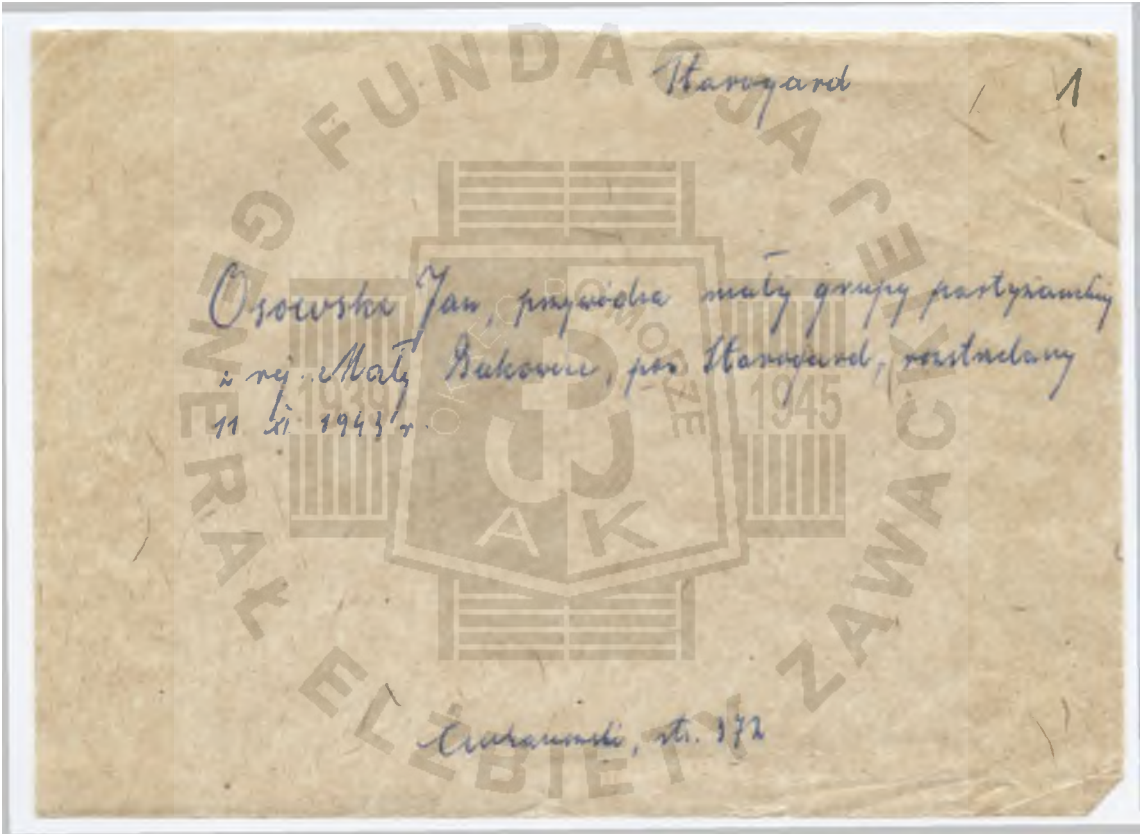 Starogard 1
Osowski Jan, przywódca małej grupy partyzanckiej
z rej. Małej Bukowiec, pow. Starogard, rozstrzelany
11 XI 1943 r.
Ciechanowski, str. 372
FUNDACJA GENERAŁ ELŻBIETY ZAWACKIEJ
OKRĘG POMORZE
1939 1945
AK